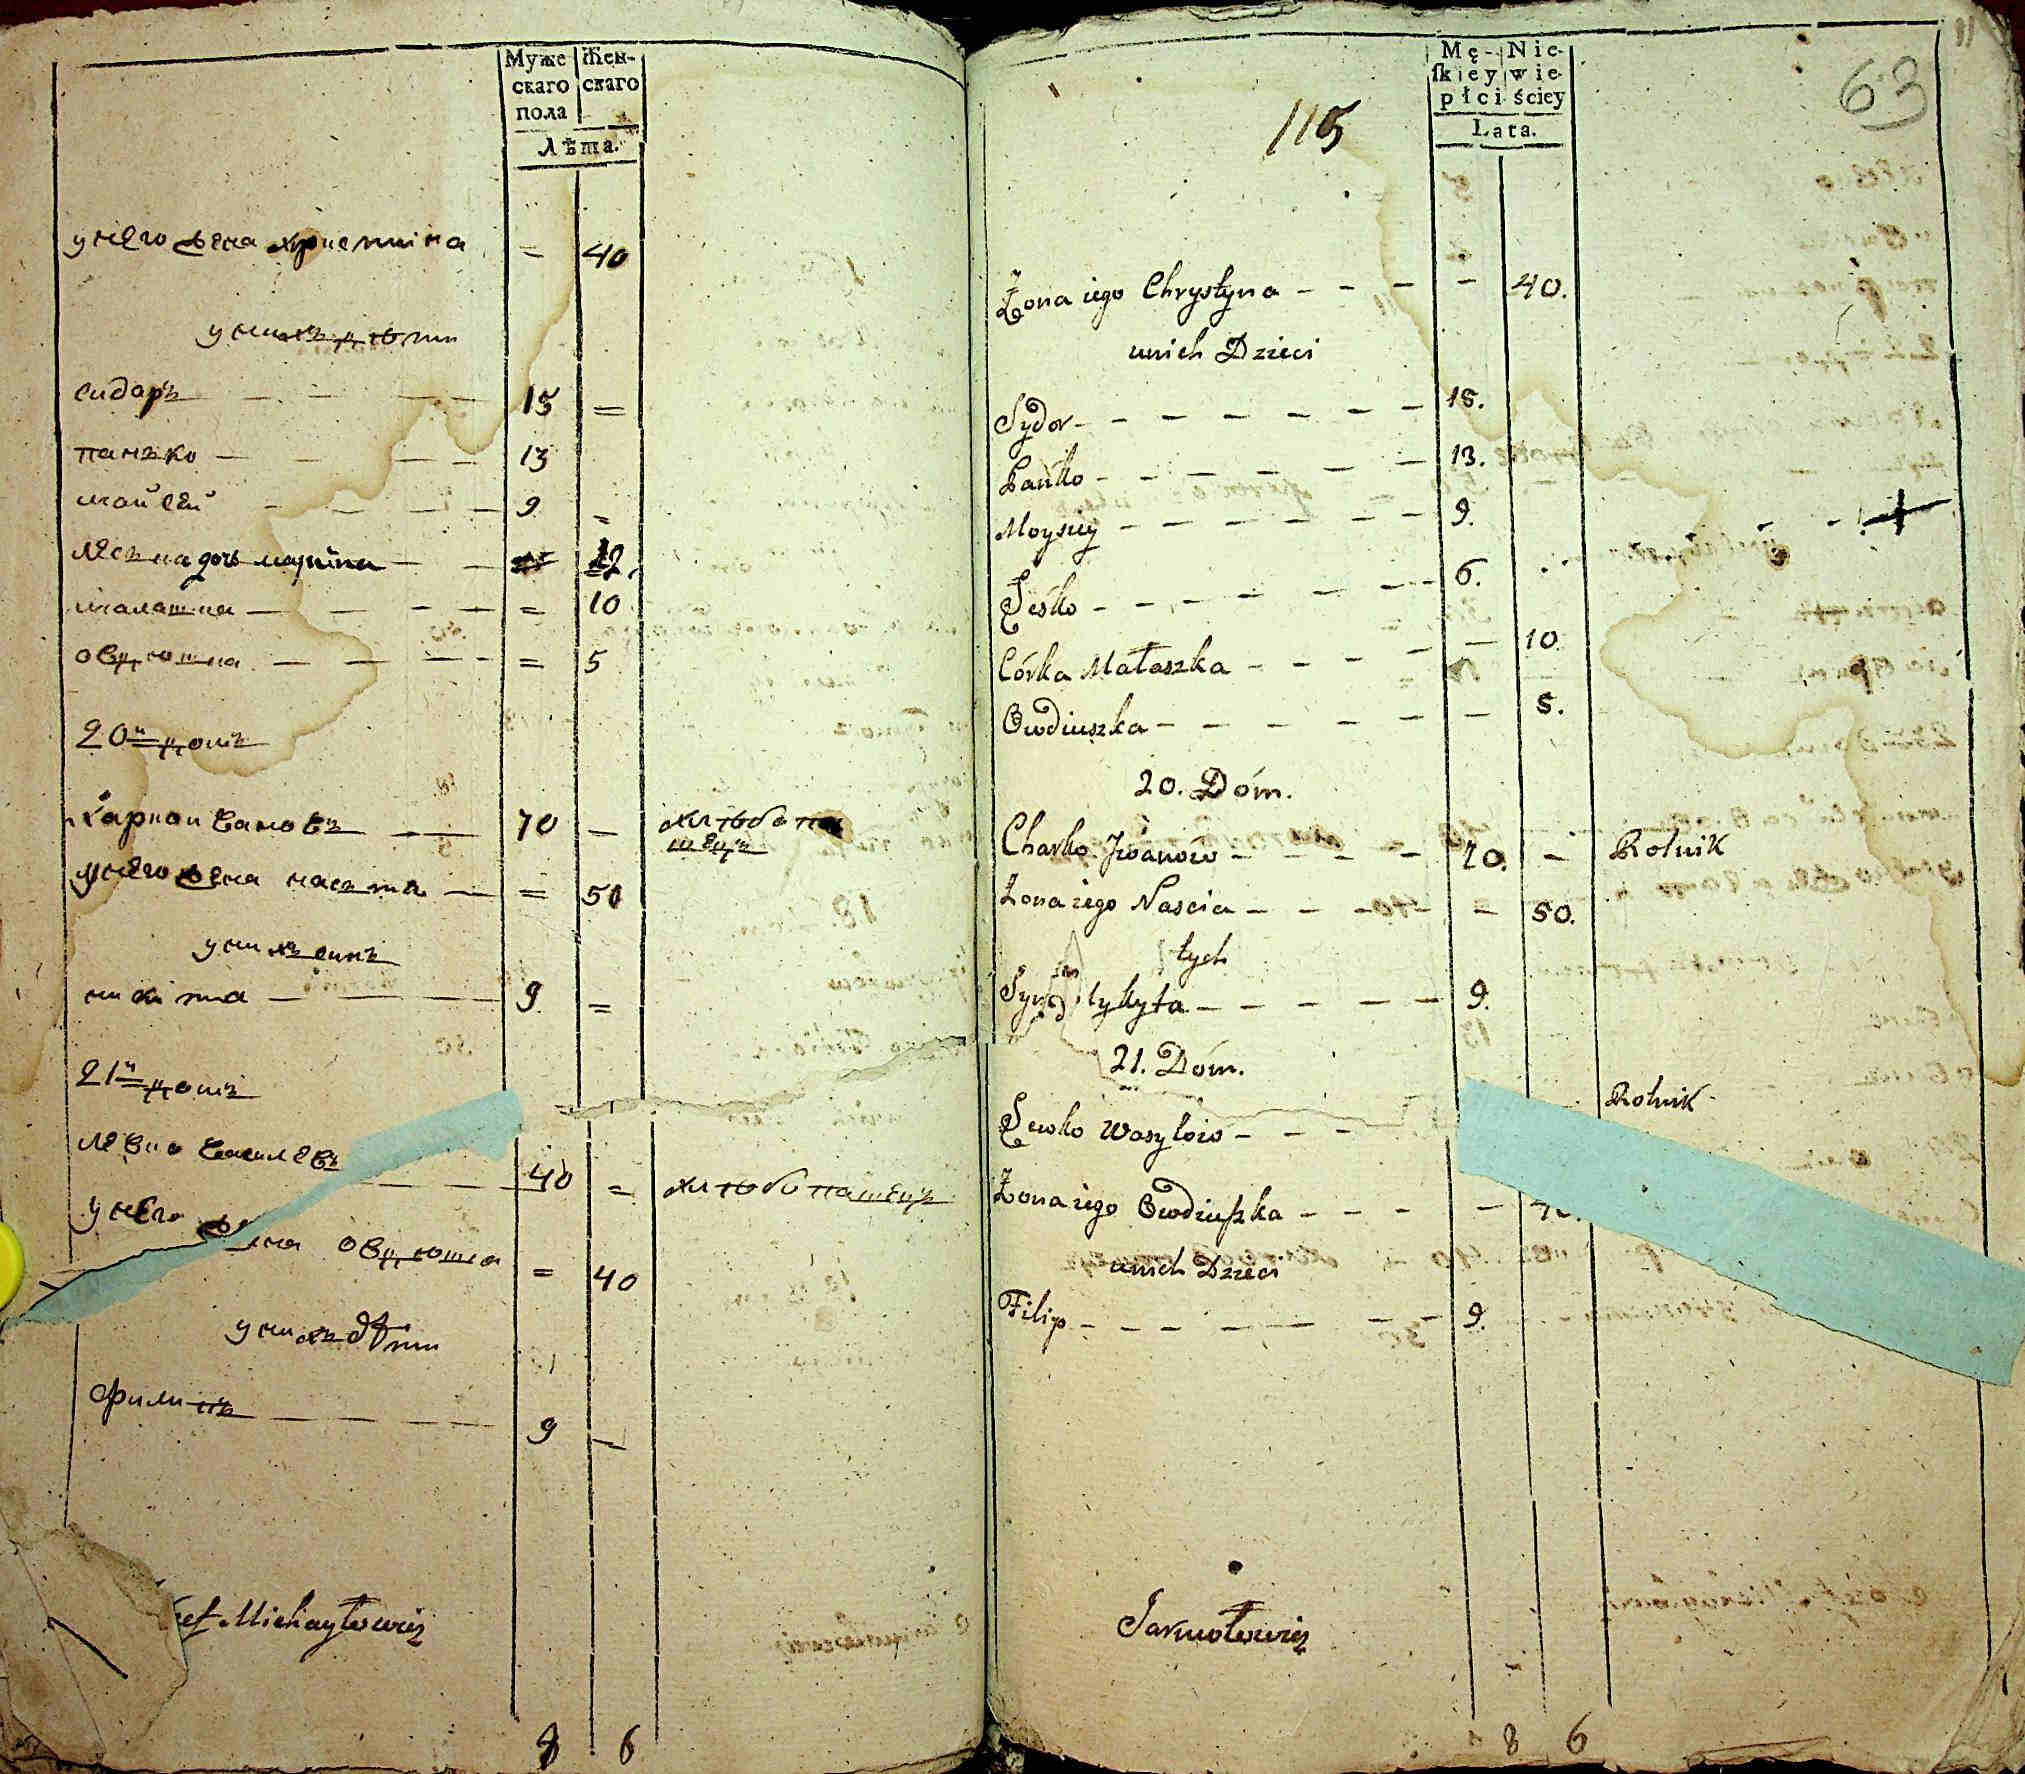 Муже
скаго
пола
Жен-
скаго
Лѣта.
у него жена христина — 40
у нихъ дѣти
сидаръ — — — — 15 =
панько — — — — 13
мойсей — — — — 9 =
лесь на дочь марина — — 12.
малашка — — — — = 10
овдюшка — — — — = 5
20й домъ
харко ивановъ — — 70 — хлѣбопа
шецъ
у него жена настя — = 50
у нихъ сынъ
микита — — — — 9 =
21й домъ
левко василевъ — — 40 = хлѣбопашецъ
у него жена овдюшка = 40
у нихъ дѣти
филипъ — — — — 9 —
Michayłowicz
8 6
115
63
Mę-
ſkiey
płci
Nie-
wie-
ściey
Lata.
Żona iego Chrystyna - - - - - 40.
unich Dzieci
Sydor - - - - - - - 15.
Pańko - - - - - - 13.
Moysiey - - - - - - 9.
Leśko - - - - - - 6.
Córka Małaszka - - - - - 10.
Owdiuszka - - - - - - 5.
20. Dóm.
Charko Jwanow - - - - - 70. - Rolnik
Żona iego Nascia - - - - - 50.
tych
Syn Mykyta - - - - - - 9.
21. Dóm.
Lewko Wasylow - - - Rolnik
Żona iego Owdiuſzka - - - -
unich Dzieci
Filip - - - - - - - 9.
Jarmołowicz
8 6